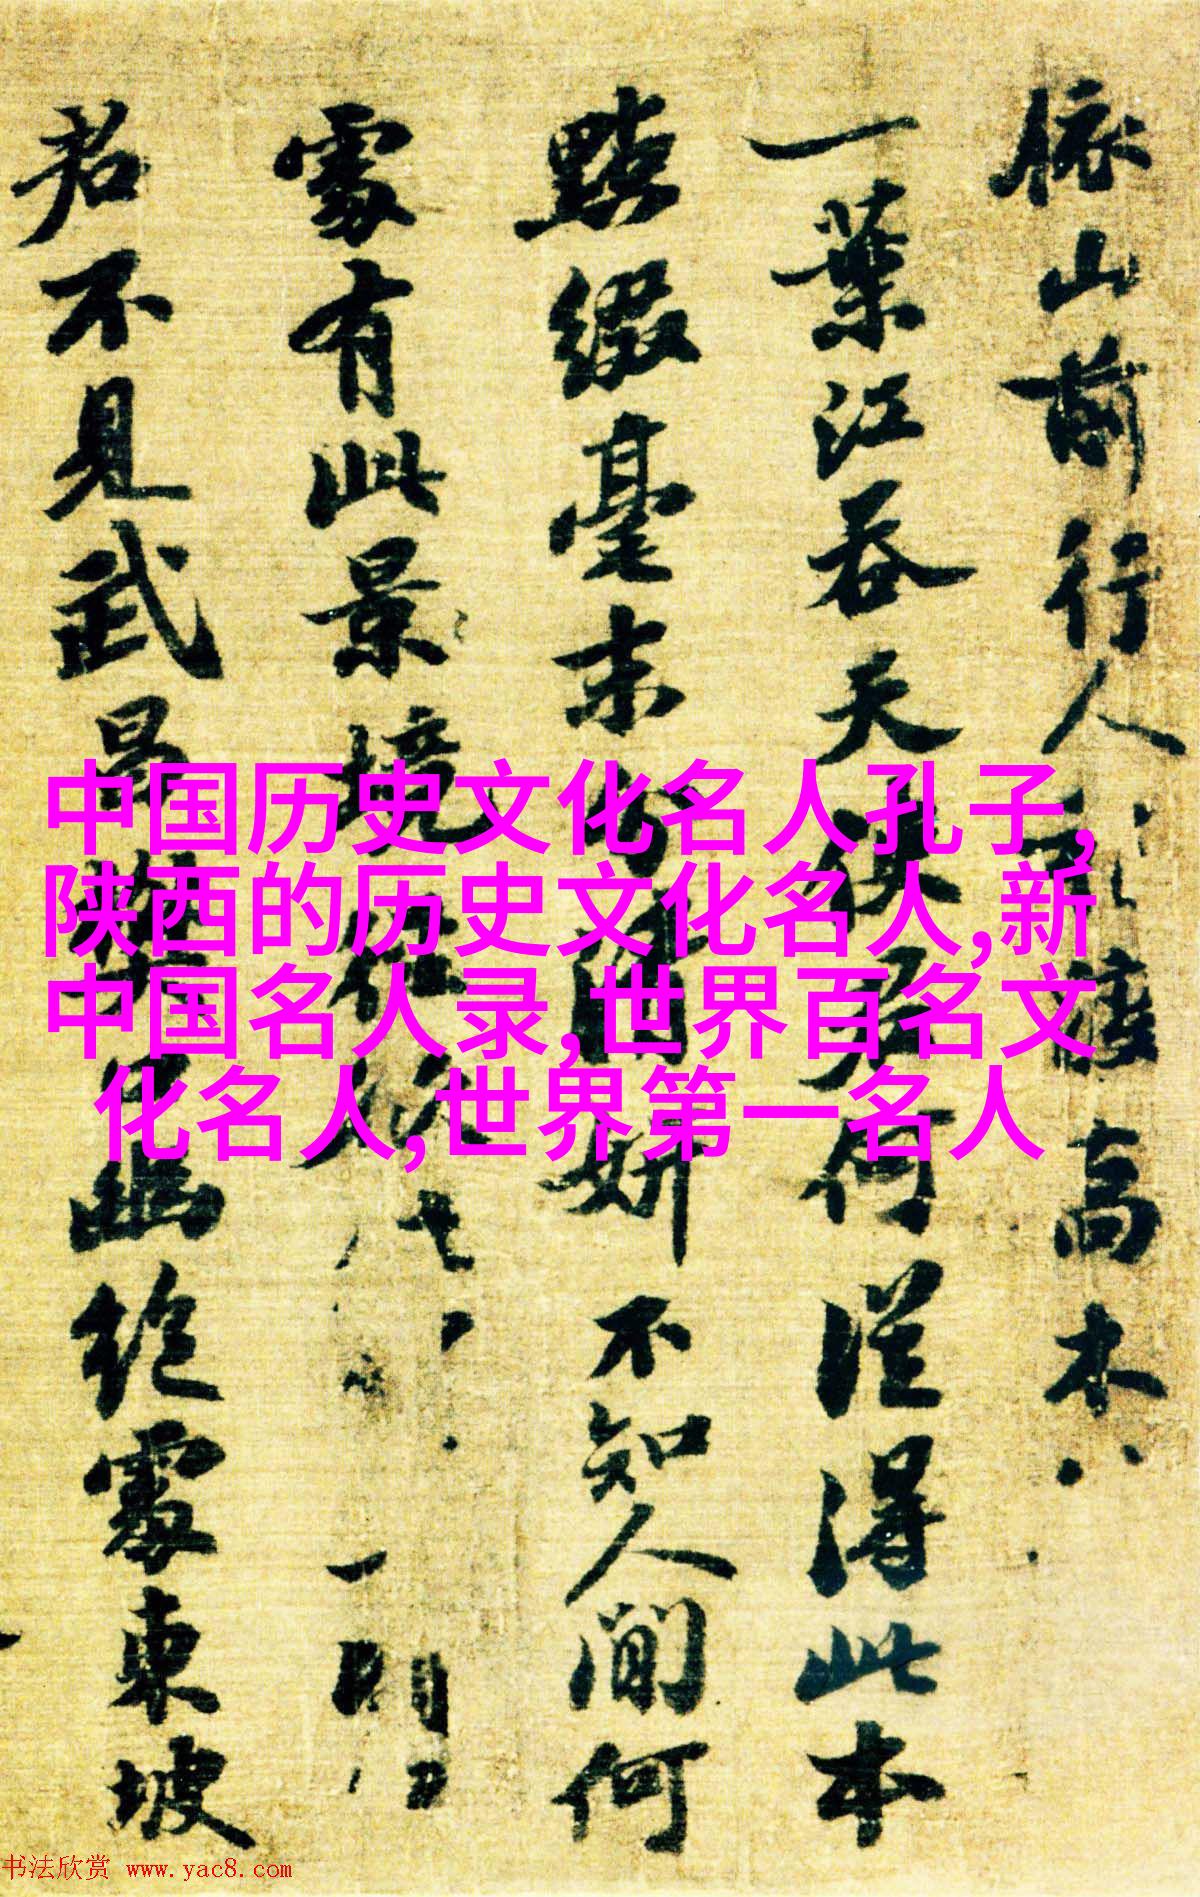 依山前行人度高木
一葉江吞天使君何從得此本
點綴毫末分清妍不知人間何
處有此景境
君不見武昌樊口幽絕處東坡
中国历史文化名人孔子,
陕西的历史文化名人,新
中国名人录,世界百名文
化名人,世界第一名人
书法欣赏 www.yac8.com